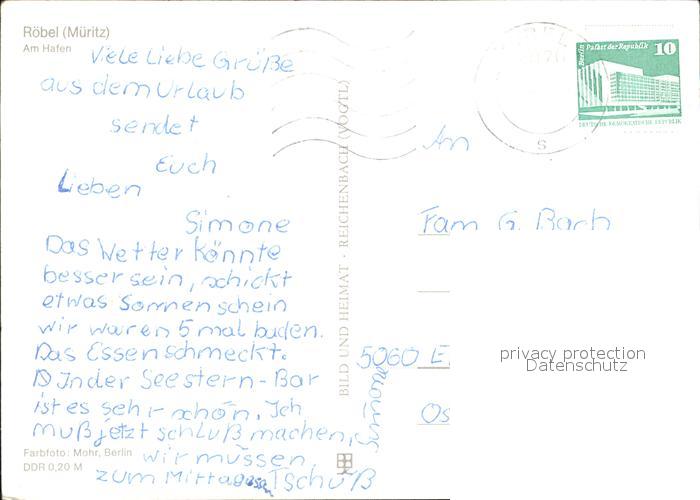 Röbel (Müritz)
Am Hafen
Viele Liebe Grüße
aus dem Urlaub
sendet
Euch
Lieben
Simone
Das Wetter könnte
besser sein, schickt
etwas Sonnenschein
wir waren 5 mal baden.
Das Essen schmeckt.
In der Seestern-Bar
ist es sehr schön. Ich
muß jetzt schluß machen,
wir müssen
zum Mittagessen Tschüß
Simone
Farbfoto: Mohr, Berlin
DDR 0,20 M
BILD UND HEIMAT · REICHENBACH (VOGTL)
Berlin Palast der Republik 10
DEUTSCHE DEMOKRATISCHE REPUBLIK
s
An
Fam G. Bach
5060 E
Os
privacy protection
Datenschutz